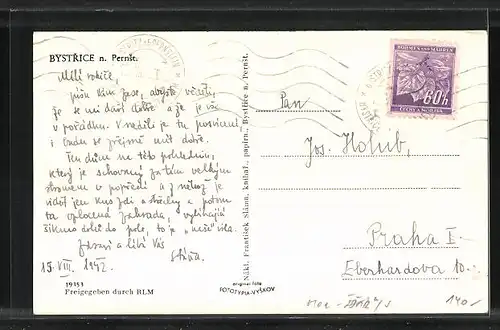 BYSTŘICE n. Pernšt.
Milí rodiče,
píšu Vám zase, abyste věděli,
že se mi daří dobře a že je vše
v pořádku. V neděli je tu posvícení
i bude se zřejmě mít dobře.
Ten dům na této pohlednici,
který je schovaný za tím velkým
stromem v popředí a z něhož je
vidět jen kus zdi a střechy a potom
ta oplocená zahrada, vybíhající
šikmo dolů do pole, to je „naše" vila.
Zdraví a líbá Vás
Sláva.
15. VIII. 1942.
19353
Freigegeben durch RLM
Nákl. František Sláma, knihař. papírn., Bystřice n. Pernšt.
original-foto
FOTOTYPIA-VYŠKOV
BÖHMEN UND MÄHREN
60h
ČECHY A MORAVA
Pan
Jos. Holub,
Praha I.
Eberhardova 10.
140,-